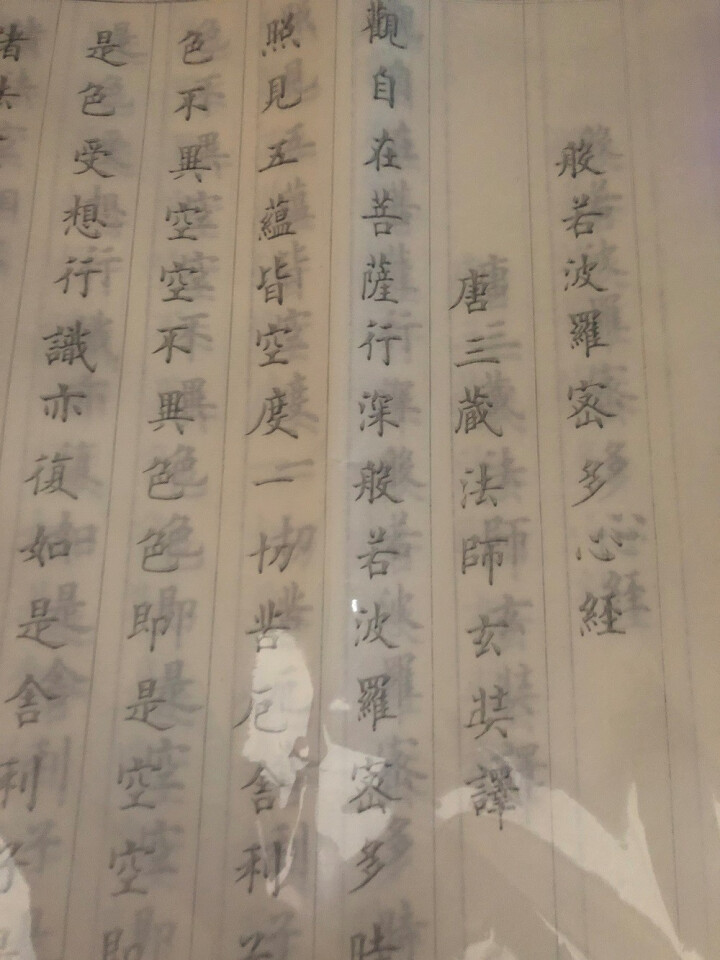 般若波羅密多心経
唐三蔵法師玄奘譯
觀自在菩薩行深般若波羅密多時
照見五蘊皆空度一切苦厄舎利子
色不異空空不異色色即是空空即
是色受想行識亦復如是舎利子